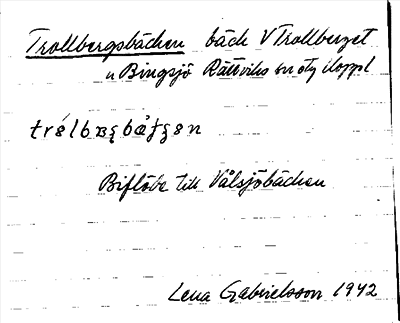 Trollbergsbäcken bäck V Trollberget
n Bingsjö Rättviks sn
trólbᴂʂbæ̀ʈʂen
Biflöde till Välsjöbäcken
Lena Gabrielsson 1942